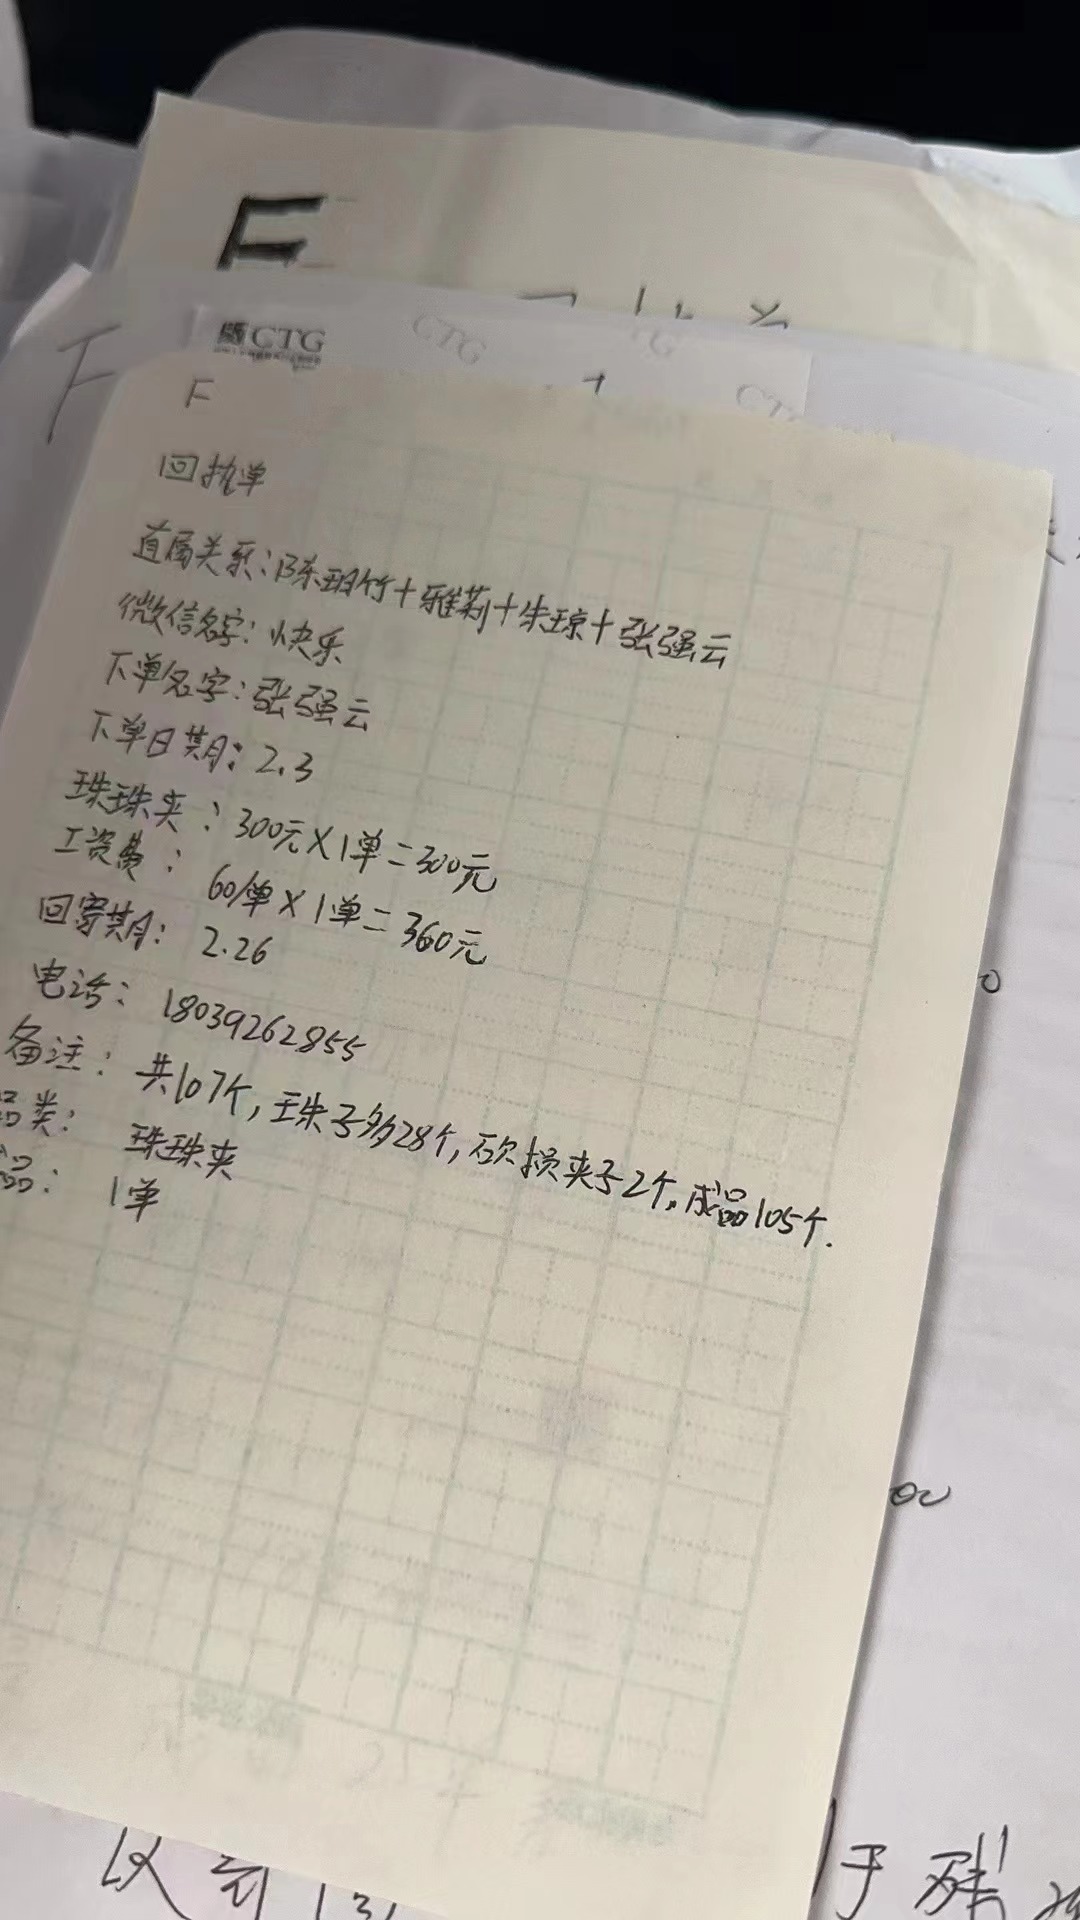 F
CTG
CTG
F
F
回执单
直属关系:陈玥竹+雅莉+朱琼+张强云
微信名字:快乐
下单名字:张强云
下单日期:2.3
珠珠夹:300元×1单=300元
工资费:60/单×1单=360元
回寄期:2.26
电话:18039262855
备注:共107个,珠子多28个,砍损夹子2个,成品105个.
品类:珠珠夹
品:1单